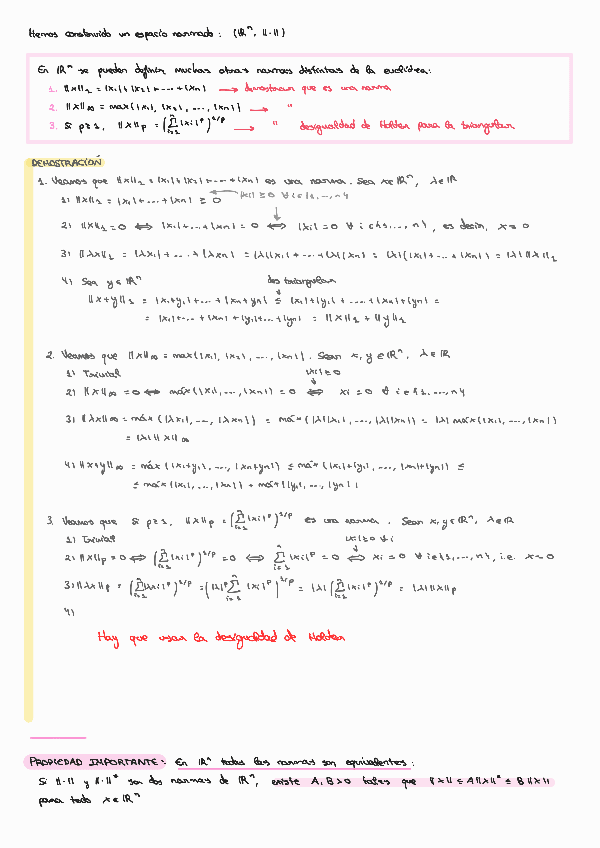 Hemos construido un espacio normado: (ℝⁿ, ‖·‖)
En ℝⁿ se pueden definir muchas otras normas distintas de la euclídea:
1. ‖x‖₁ = |x₁|+|x₂|+...+|xₙ| → demostrar que es una norma
2. ‖x‖∞ = max{|x₁|, |x₂|, ..., |xₙ|} → "
3. Si p≥1, ‖x‖p = (∑ᵢ₌₁ⁿ |xᵢ|ᵖ)^1/p → " desigualdad de Holder para la triangular
DEMOSTRACIÓN
1. Veamos que ‖x‖₁ = |x₁|+|x₂|+...+|xₙ| es una norma. Sea x∈ℝⁿ, λ∈ℝ
|xᵢ| ≥ 0 ∀ i∈{1,...,n}
1) ‖x‖₁ = |x₁|+...+|xₙ| ≥ 0
2) ‖x‖₁ = 0 ⟺ |x₁|+...+|xₙ| = 0 ⟺ |xᵢ| = 0 ∀ i∈{1,...,n}, es decir, x = 0
3) ‖λx‖₁ = |λx₁|+...+|λxₙ| = |λ||x₁|+...+|λ||xₙ| = |λ|(|x₁|+...+|xₙ|) = |λ|‖x‖₁
4) Sea y∈ℝⁿ des triangular
‖x+y‖₁ = |x₁+y₁|+...+|xₙ+yₙ| ≤ |x₁|+|y₁|+...+|xₙ|+|yₙ| =
= |x₁|+...+|xₙ|+|y₁|+...+|yₙ| = ‖x‖₁ + ‖y‖₁
2. Veamos que ‖x‖∞ = max{|x₁|, |x₂|, ..., |xₙ|}. Sean x, y∈ℝⁿ, λ∈ℝ
1) Trivial |xᵢ|≥0
2) ‖x‖∞ = 0 ⟺ máx{|x₁|, ..., |xₙ|} = 0 ⟺ xᵢ = 0 ∀ i∈{1,...,n}
3) ‖λx‖∞ = máx{|λx₁|, ..., |λxₙ|} = máx{|λ||x₁|, ..., |λ||xₙ|} = |λ| máx{|x₁|, ..., |xₙ|}
= |λ|‖x‖∞
4) ‖x+y‖∞ = máx{|x₁+y₁|, ..., |xₙ+yₙ|} ≤ máx{|x₁|+|y₁|, ..., |xₙ|+|yₙ|} ≤
≤ máx{|x₁|, ..., |xₙ|} + máx{|y₁|, ..., |yₙ|}
3. Veamos que si p≥1, ‖x‖p = (∑ᵢ₌₁ⁿ |xᵢ|ᵖ)^1/p es una norma. Sean x, y∈ℝⁿ, λ∈ℝ
1) Trivial |xᵢ|≥0 ∀ i
2) ‖x‖p = 0 ⟺ (∑ᵢ₌₁ⁿ |xᵢ|ᵖ)^1/p = 0 ⟺ ∑ᵢ₌₁ⁿ |xᵢ|ᵖ = 0 ⟺ xᵢ = 0 ∀ i∈{1,...,n}, i.e. x = 0
3) ‖λx‖p = (∑ᵢ₌₁ⁿ |λxᵢ|ᵖ)^1/p = (|λ|ᵖ ∑ᵢ₌₁ⁿ |xᵢ|ᵖ)^1/p = |λ| (∑ᵢ₌₁ⁿ |xᵢ|ᵖ)^1/p = |λ|‖x‖p
4)
Hay que usar la desigualdad de Holder
PROPIEDAD IMPORTANTE: En ℝⁿ todas las normas son equivalentes:
Si ‖·‖ y ‖·‖* son dos normas de ℝⁿ, existe A, B>0 tales que ‖x‖ ≤ A‖x‖* ≤ B‖x‖
para todo x∈ℝⁿ